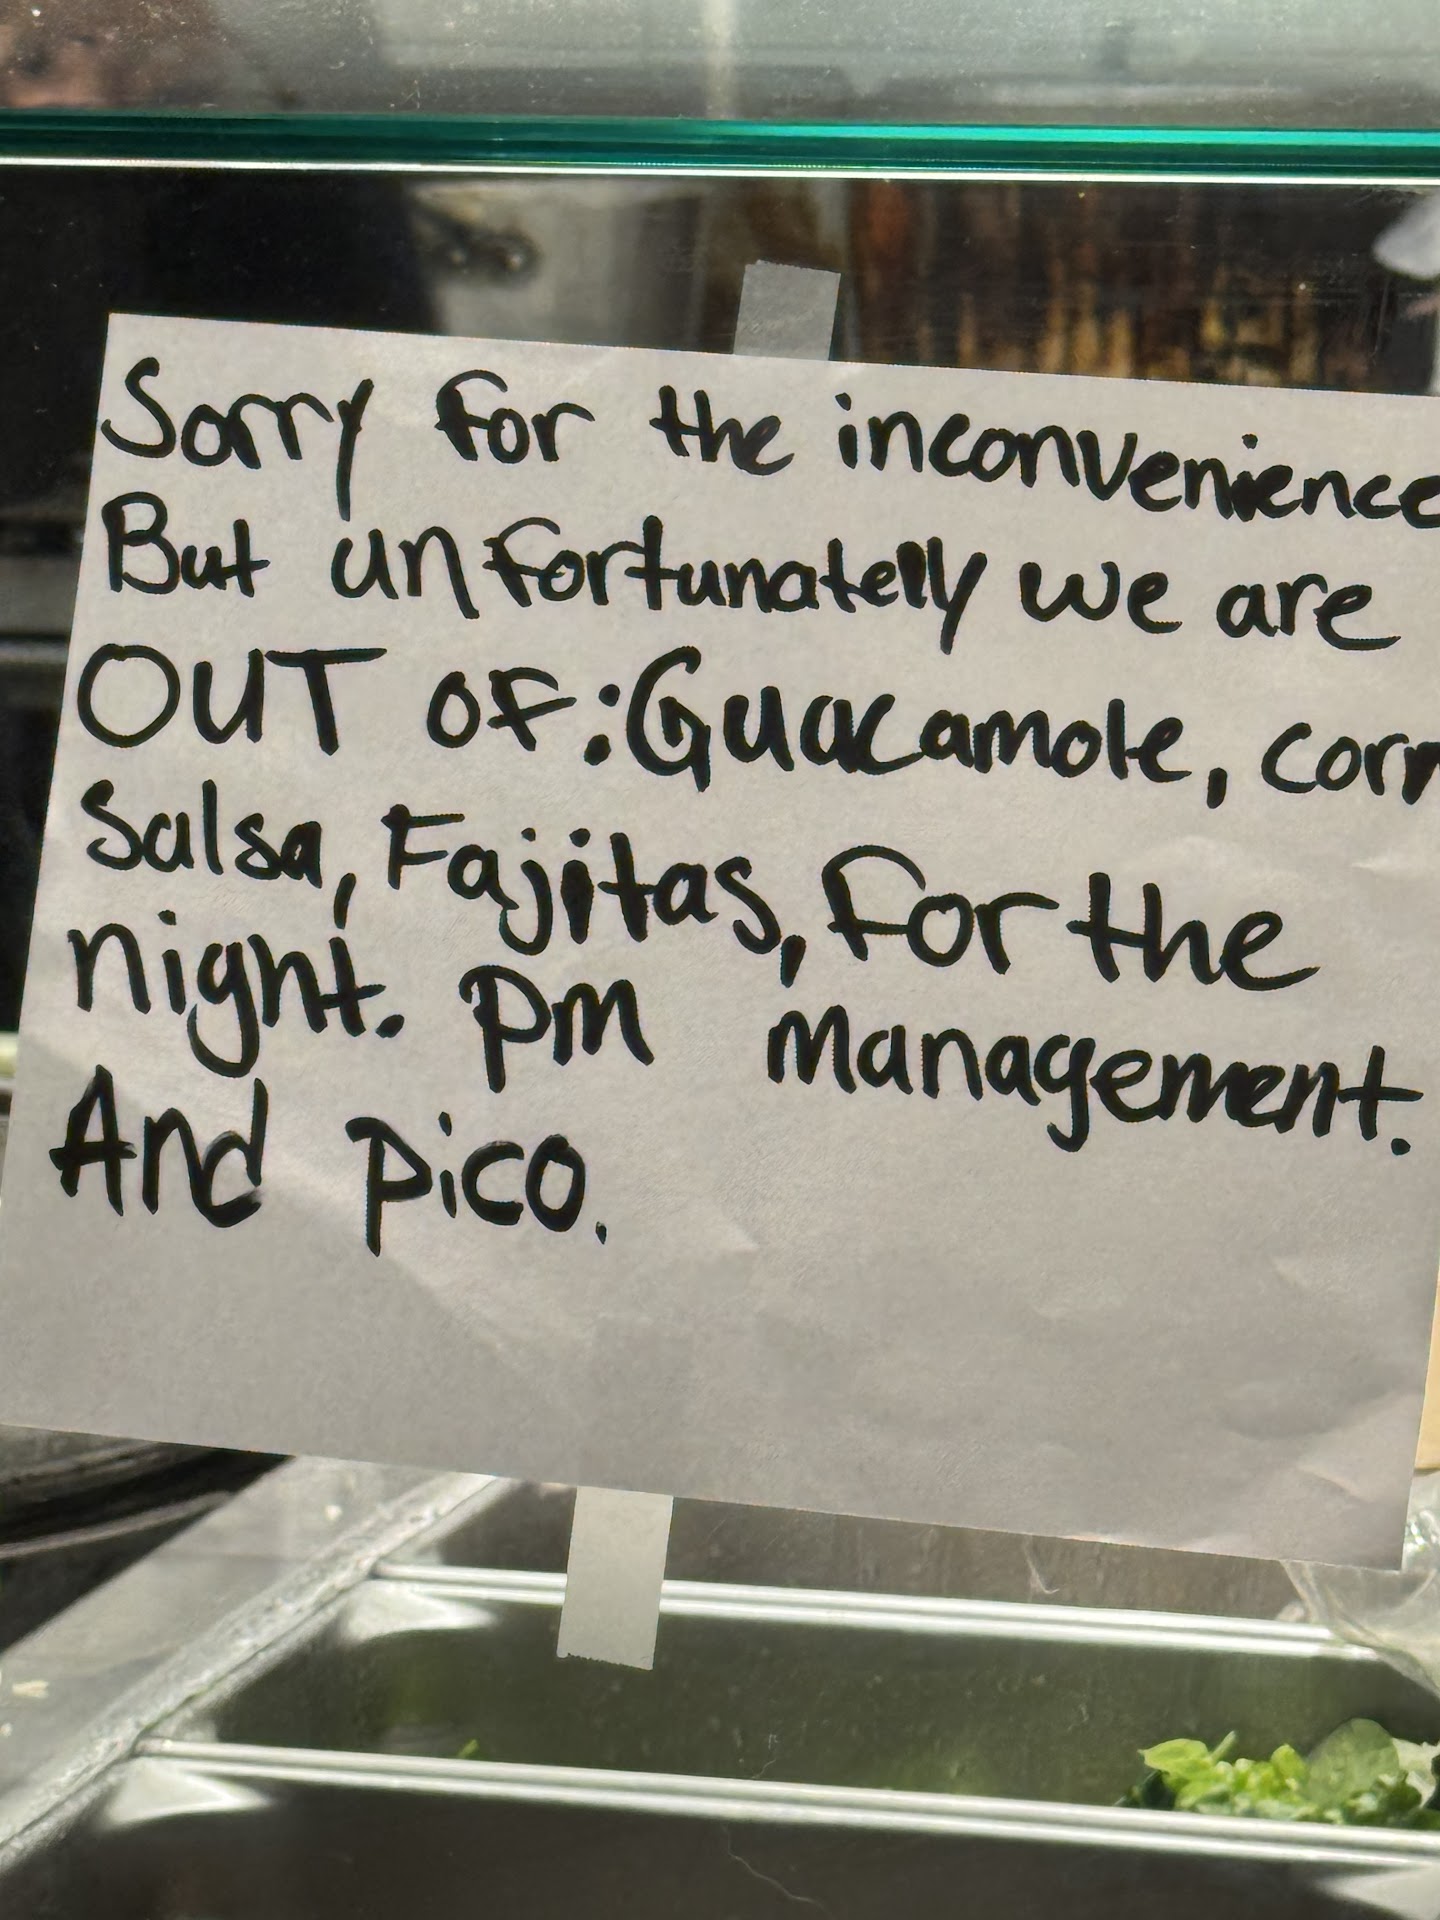 Sorry for the inconvenience
But unfortunatelly we are
OUT OF: Guacamole, corn
Salsa, Fajitas, For the
night. PM Management.
And pico.